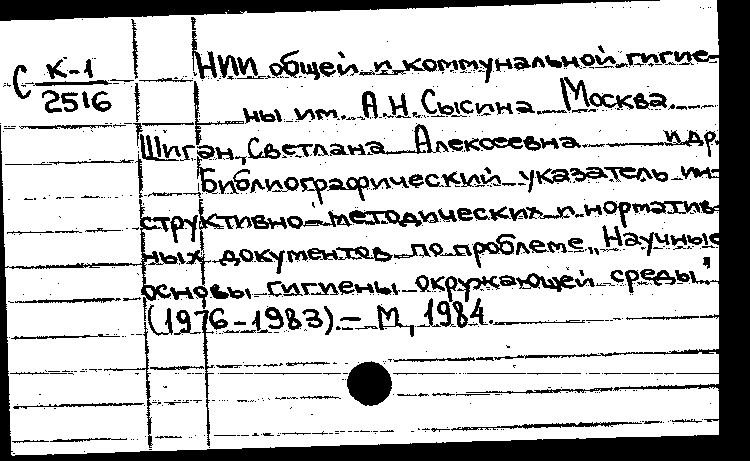 С К-1
2516
НИИ общей и коммунальной гигие-
ны им. А.Н.Сысина Москва.
Шиган, Светлана Алексеевна и др.
Библиографический указатель ин-
структивно-методических и норматив-
ных документов по проблеме „Научные
основы гигиены окружающей среды"
(1976-1983).- М, 1984.